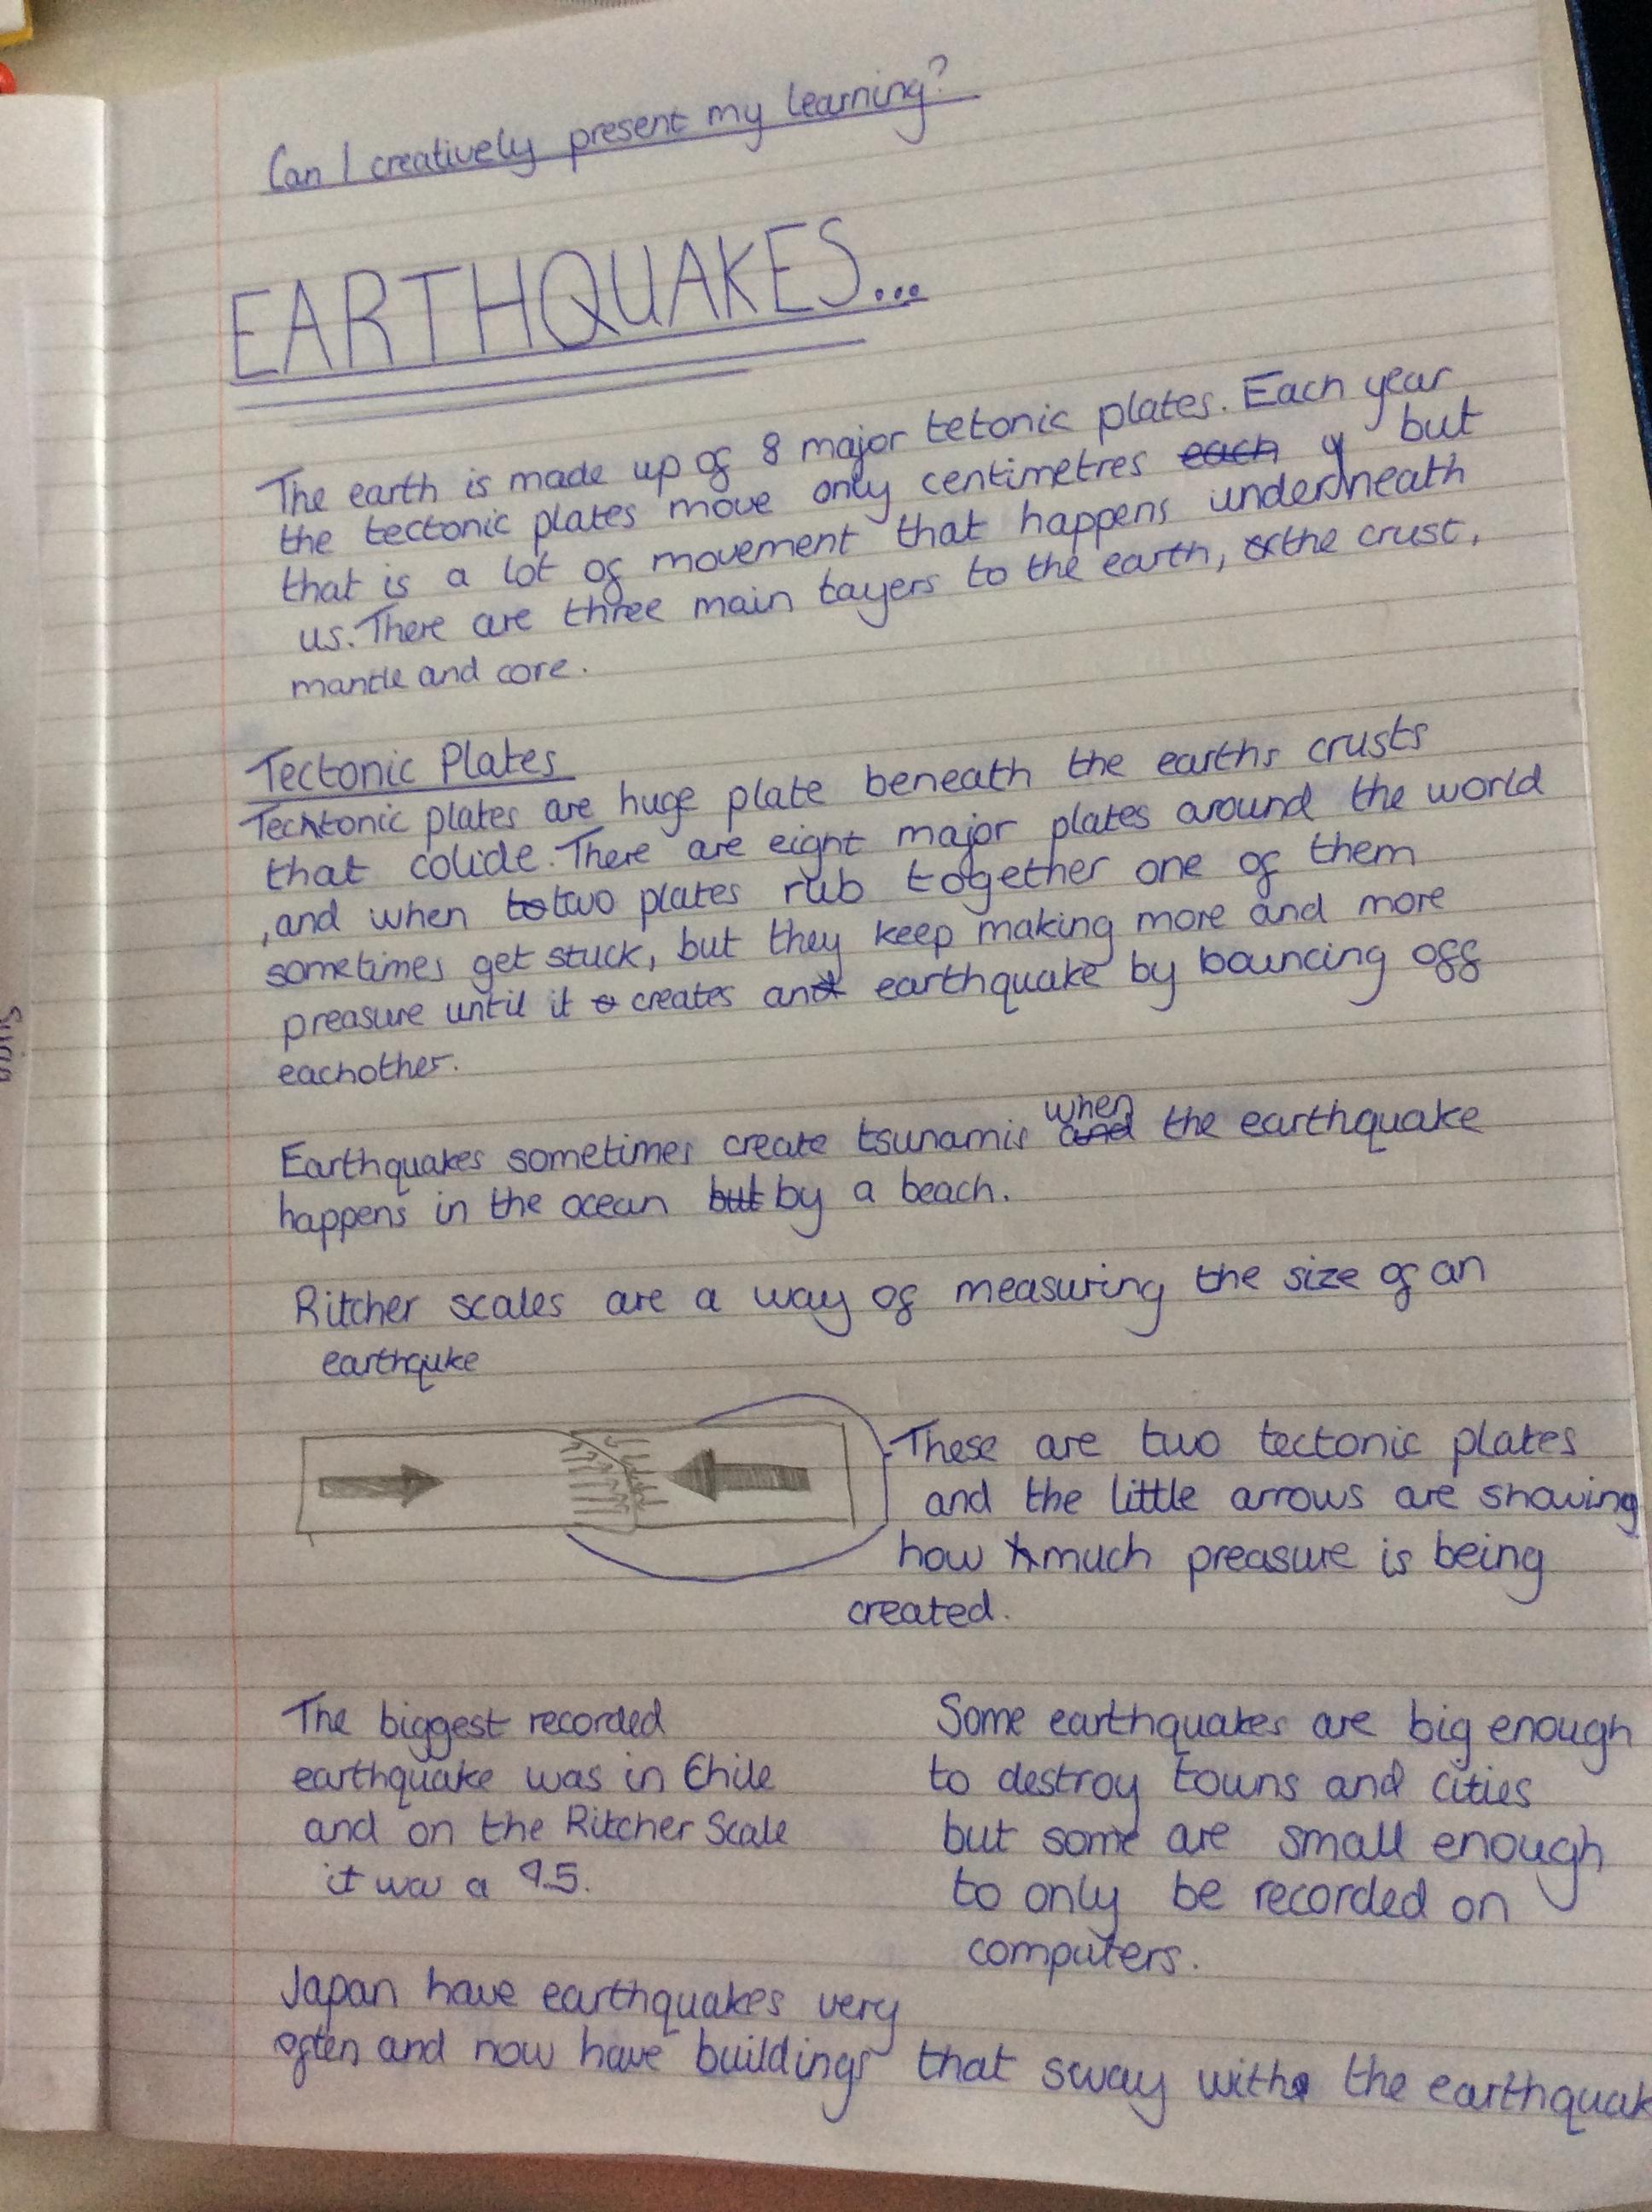 Can I creatively present my learning?
EARTHQUAKES...
The earth is made up of 8 major tetonic plates. Each year
the tectonic plates move only centimetres each y but
that is a lot of movement that happens underneath
us. There are three main layers to the earth, the crust,
mantle and core.
Tectonic Plates
Tectonic plates are huge plate beneath the earths crusts
that colide. There are eight major plates around the world
,and when to two plates rub together one of them
sometimes get stuck, but they keep making more and more
preasure until it creates an earthquake by bouncing off
eachother.
when
Earthquakes sometimes create tsunamis and the earthquake
happens in the ocean but by a beach.
Ritcher scales are a way of measuring the size of an
earthquke
These are two tectonic plates
and the little arrows are showing
how much preasure is being
created.
The biggest recorded
earthquake was in Chile
and on the Ritcher Scale
it was a 9.5.
Some earthquakes are big enough
to destroy towns and cities
but some are small enough
to only be recorded on
computers.
Japan have earthquakes very
often and now have buildings that sway with the earthquak